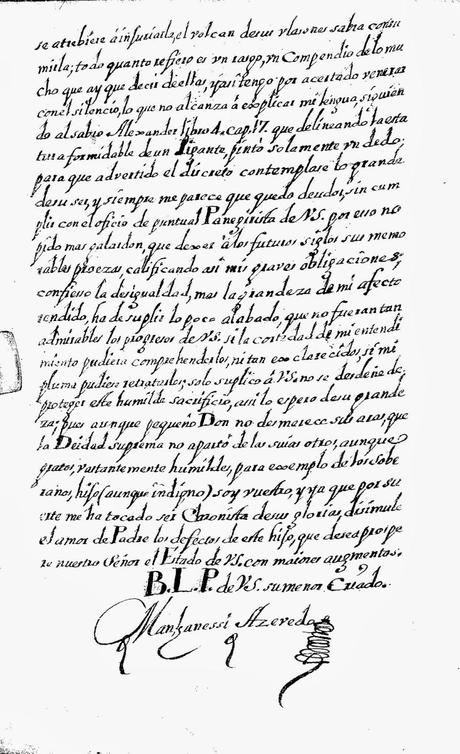 se atrebiere à insuriarla, el volcan de sus blasones sabra consu
mirla; todo quanto refiero es vn rasgo, vn Compendio de lo mu
cho que ay que decir de ellas, y asi tengo por acertado venerar
con el silencio, lo que no alcanza à explicar mi lengua, siguien
do al sabio Alexander libro 4. cap. 17. que delineando la esta
tura formidable de un Gigante, pintò solamente vn dedo;
para que advertido el discreto contemplase lo grande
de su ser, y siempre me parece que quedo deudor, sin cum
plir con el oficio de puntual Panegirista de VS. por esso no
pido mas galardon, que dexar à los futuros siglos sus memo
rables proezas, calificando asi mis graves obligaciones;
confieso la desigualdad, mas la grandeza de mi afecto
rendido, ha de suplir lo poco alabado, que no fueran tan
admirables los progresos de VS. si la cortedad de mi entendi
miento pudiera comprehenderlos, ni tan exclarecidos, si mi
pluma pudiese retratarlos; solo suplico à VS. no se desdeñe de
proteger este humilde sacrificio, assi lo espero de su grande
za; pues aunque pequeño Don no desmerece sus aras, que
la Deidad suprema no apartò de las suias otros, aunque
gratos, vastantemente humildes, para exemplo de los sobe
ranos, hijo (aunque indigno) soy vuestro, y ya que por su
erte me ha tocado ser Chronista de sus glorias, disimule
el amor de Padre los defectos de este hijo, que desea prospe
re nuestro Señor el Estado de VS. con maiores augmentos.
B. L. P. de VS. su menor Criado.
Manzanessi Azevedo